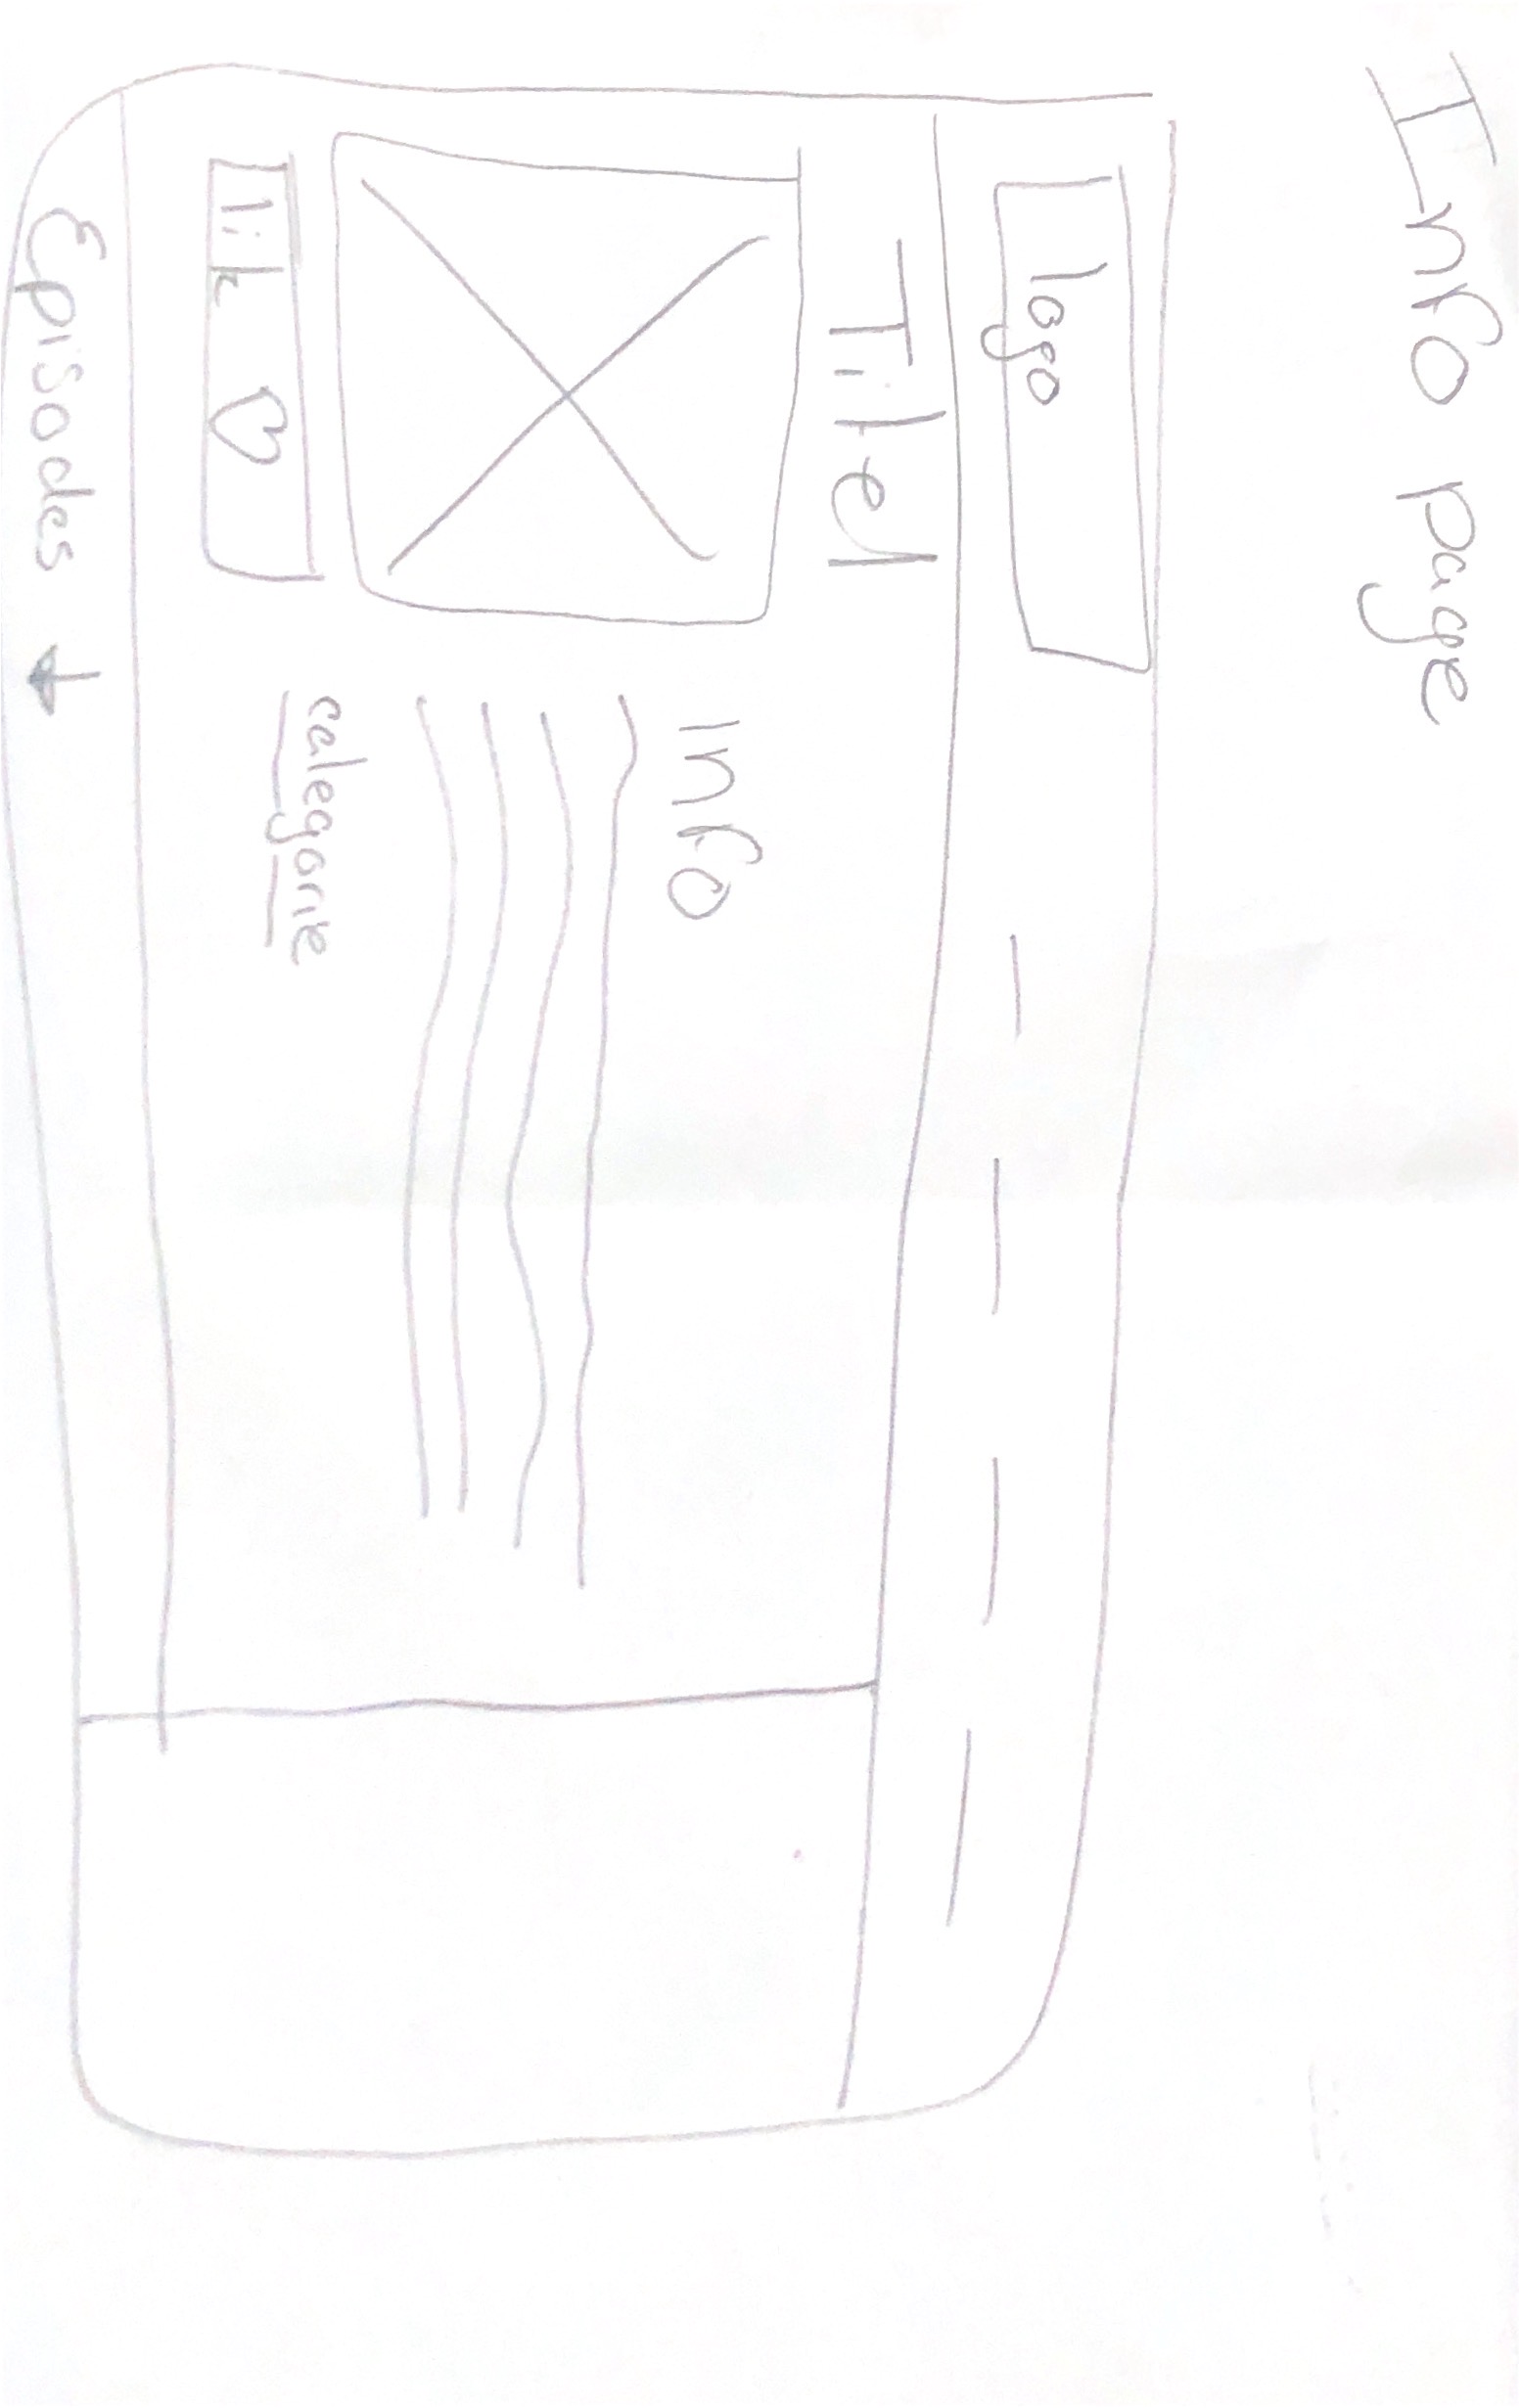 Info page
logo
Titel
Info
lik ♡
categorie
Episodes ↓